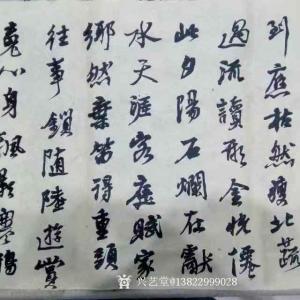 到庶枯然瘦北蔬
過流讀形金恍僊
此夕陽石爛在獻
水天涯客應賦家
鄉然棄笛得重頭
往事鎖随陸遊賞
堯心身飄影
兴艺堂@13822999028